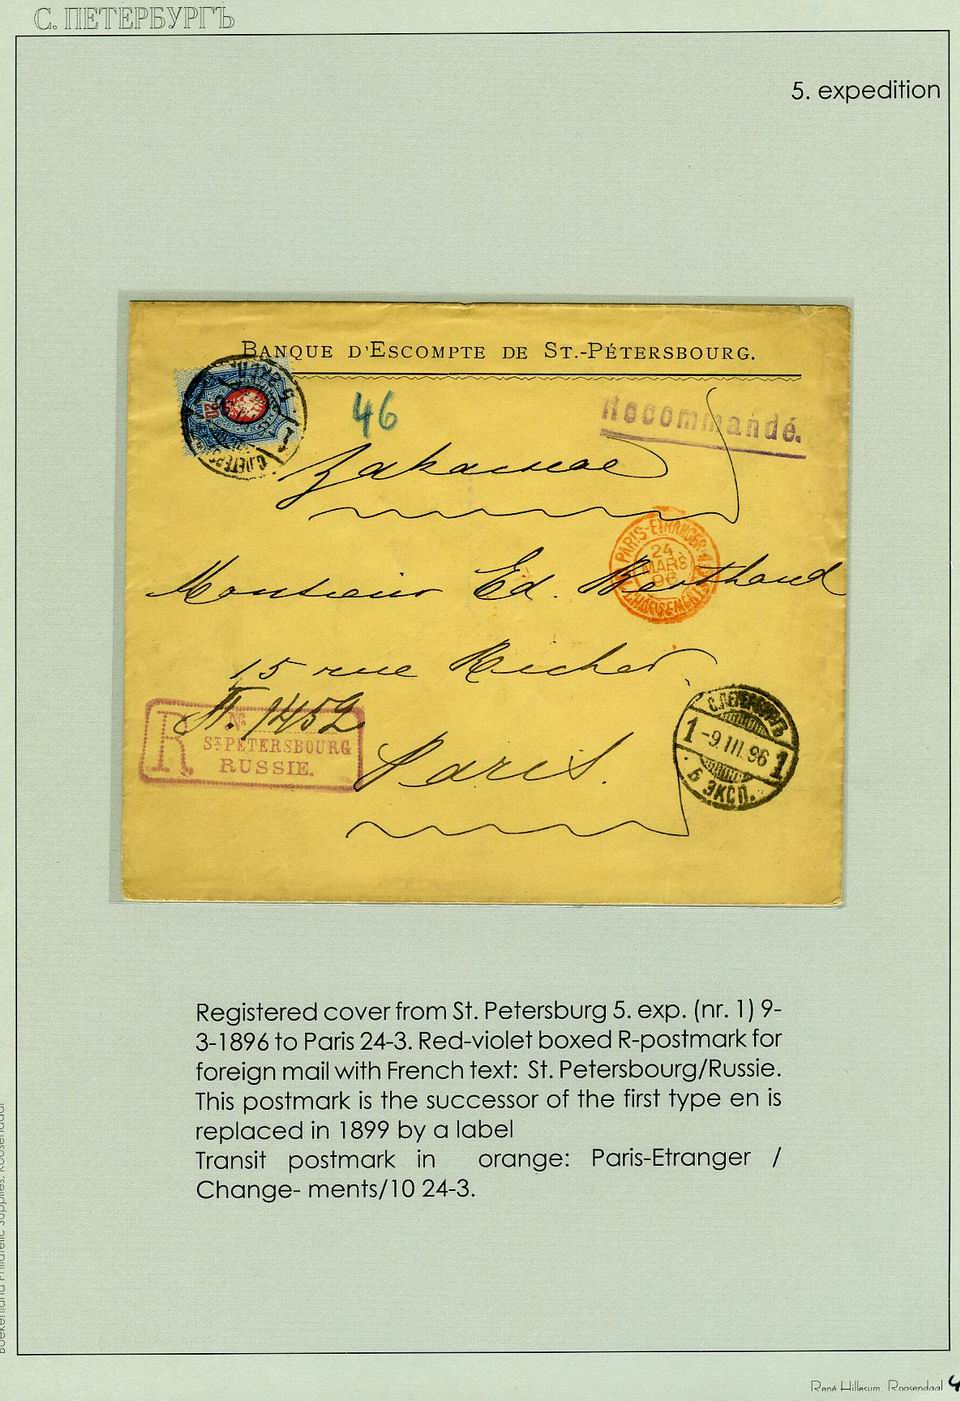 С. ПЕТЕРБУРГЪ
5. expedition
BANQUE D'ESCOMPTE DE ST.-PÉTERSBOURG.
46
Recommandé.
Заказное
PARIS-ETRANGER
24
MARS
96
CHARGEMENTS
Monsieur Ed. Berthaud
15 rue Richer
N. 1452
R
No
ST PETERSBOURG
RUSSIE.
Paris.
С.ПЕТЕРБУРГЪ
1 -9.III.96 1
5 ЭКСП.
Registered cover from St. Petersburg 5. exp. (nr. 1) 9-
3-1896 to Paris 24-3. Red-violet boxed R-postmark for
foreign mail with French text: St. Petersbourg/Russie.
This postmark is the successor of the first type en is
replaced in 1899 by a label
Transit postmark in orange: Paris-Etranger /
Change- ments/10 24-3.
Philatelic Supplies, Roosendaal
René Hillesum, Roosendaal 4